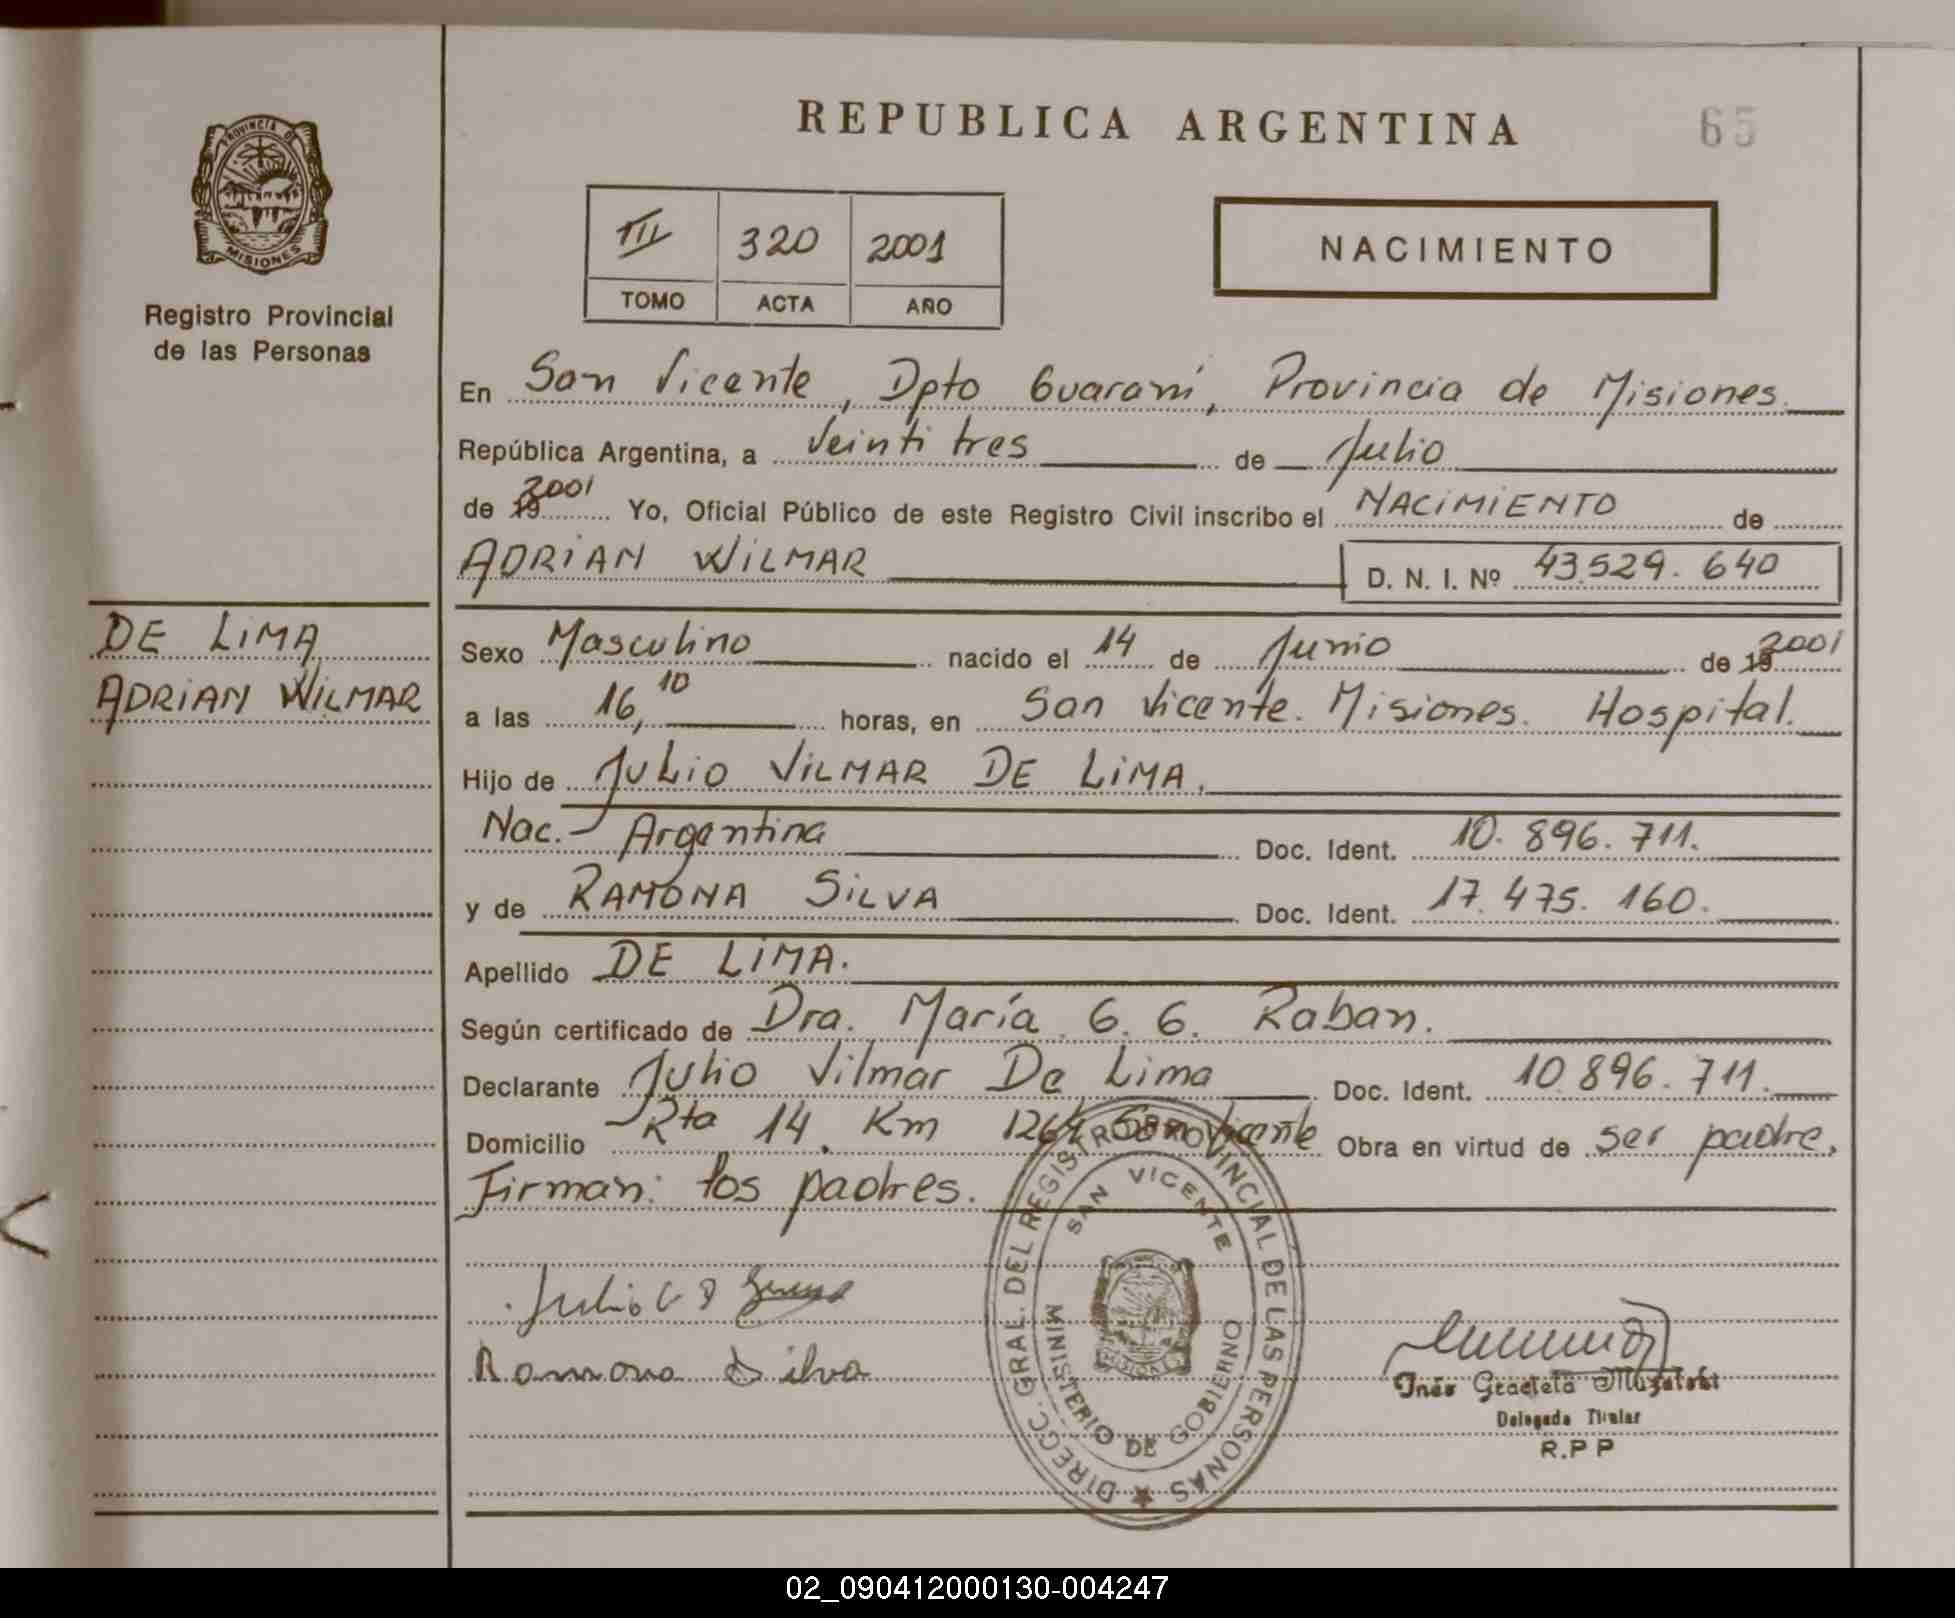 REPUBLICA ARGENTINA
65
PROVINCIA DE
MISIONES
Registro Provincial
de las Personas
III 320 2001
TOMO ACTA AÑO
NACIMIENTO
En San Vicente, Dpto Guaraní, Provincia de Misiones.
República Argentina, a Veinti tres de Julio
de 19 2001 Yo, Oficial Público de este Registro Civil inscribo el NACIMIENTO de
ADRIAN WILMAR D. N. I. Nº 43.529.640
DE LIMA
ADRIAN WILMAR
Sexo Masculino nacido el 14 de Junio de 19 2001
a las 16,10 horas, en San Vicente. Misiones. Hospital.
Hijo de JULIO VILMAR DE LIMA.
Nac. Argentina Doc. Ident. 10.896.711.
y de RAMONA SILVA Doc. Ident. 17.475.160.
Apellido DE LIMA.
Según certificado de Dra. María G. G. Raban.
Declarante Julio Vilmar De Lima Doc. Ident. 10.896.711.
Domicilio Rta 14. Km 1264 San Vicente Obra en virtud de ser padre.
Firman: los padres.
Julio
Ramona Silva
DIRECC. GRAL. DEL REGISTRO PROVINCIAL DE LAS PERSONAS
SAN VICENTE
MINISTERIO DE GOBIERNO
Inés Graciela
Delegada Titular
R.P P
02_090412000130-004247